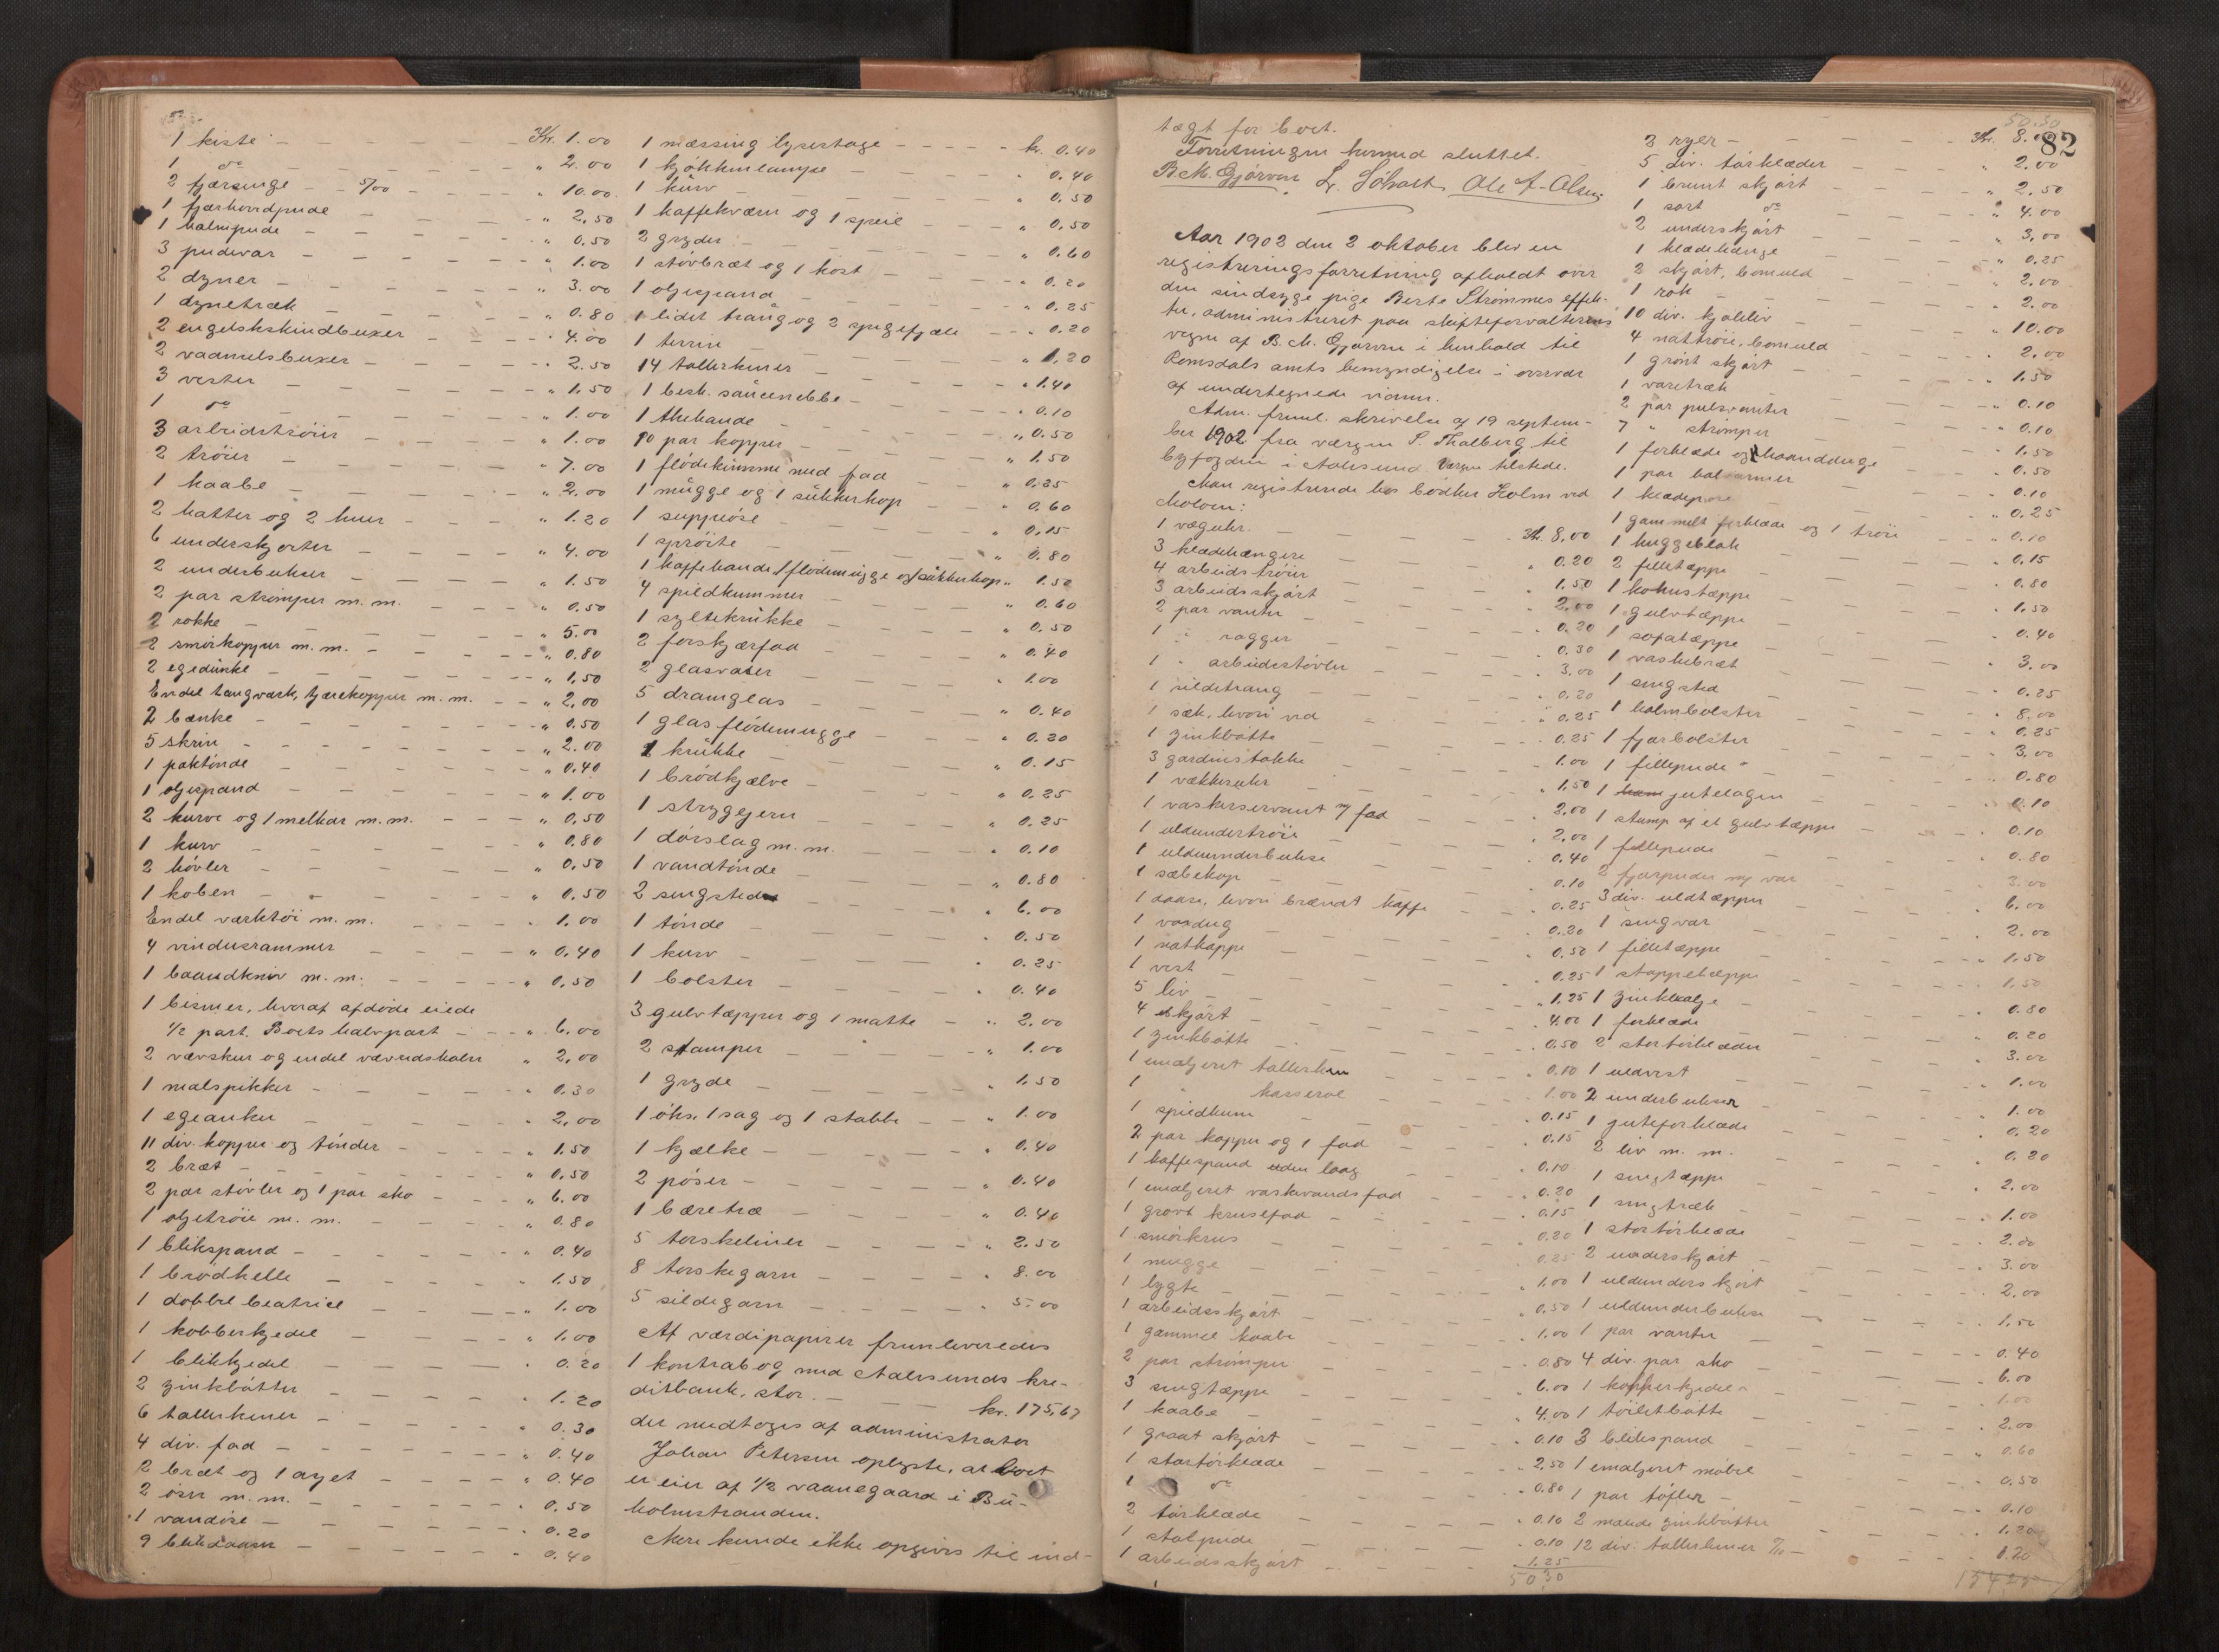 1 kiste - - - Kr. 1.00
1 do - - - " 2.00
2 fjærsenge - - 5/00 - " 10.00
1 fjærhovedpude - - - " 2.50
1 halmpude - - - " 0.50
3 pudevar - - - " 1.00
2 dyner - - - " 3.00
1 dynetræk - - - " 0.80
2 engelskskindbuxer - - - " 4.00
2 vadmelsbuxer - - - " 2.50
3 vester - - - " 1.50
1 do - - - " 1.00
3 arbeidstrøier - - - " 1.00
2 trøier - - - " 7.00
1 kaabe - - - " 2.00
2 hatter og 2 huer - - - " 1.20
6 underskjorter - - - " 4.00
2 underbukser - - - " 1.50
2 par strømper m. m. - - - " 0.50
2 rokke - - - " 5.00
2 smørkopper m. m. - - - " 0.80
2 egedunke - - - " 1.50
Endel taugværk, tjærekopper m. m. - - " 2.00
2 bænke - - - " 0.50
5 skrin - - - " 2.00
1 paktønde - - - " 0.40
1 oljespand - - - " 1.00
2 kurve og 1 melkar m. m. - - - " 0.50
1 kurv - - - " 0.80
2 høvler - - - " 0.50
1 koben - - - " 0.50
Endel værktøi m. m. - - - " 1.00
4 vinduesrammer - - - " 0.40
1 baandkniv m. m. - - - " 0.50
1 bismer, hvoraf afdøde eiede
1/2 part. Boets halvpart - - - " 6.00
2 vævskeer og endel væveredskaber " 2.00
1 melspikker - - - " 0.30
1 egeanker - - - " 2.00
11 div. kopper og tønder - - - " 1.50
2 bræt - - - " 0.50
2 par støvler og 1 par sko - - - " 6.00
1 oljetrøie m. m. - - - " 0.80
1 blikspand - - - " 0.40
1 brødhelle - - - " 1.50
1 dobbel beatrice - - - " 1.00
1 kobberkjedel - - - " 1.00
1 blikkjedel - - - " 0.20
2 zinkbøtter - - - " 1.20
6 tallerkener - - - " 0.30
4 div. fad - - - " 0.40
2 bræt og 1 øget - - - " 0.40
2 øser m. m. - - - " 0.50
1 vandøse - - - " 0.20
9 blikdaaser - - - " 0.40
1 messing lysestage - - - kr. 0.40
1 kjøkkenlampe - - - " 0.40
1 kurv - - - " 0.50
1 kaffekværn og 1 speil - - - " 0.50
2 gryder - - - " 0.60
1 støvbræt og 1 kost - - - " 0.20
1 oljespand - - - " 0.25
1 lidet traug og 2 spigefjæle - - - " 0.20
1 terrin - - - " 1.20
14 tallerkener - - - " 1.40
1 besk. saucenebbe - - - " 0.10
1 thekande - - - " 0.50
10 par kopper - - - " 1.50
1 flødekumme med fad - - - " 0.25
1 mugge og 1 sukkerkop - - - " 0.60
1 suppeøse - - - " 0.15
1 sprøite - - - " 0.80
1 kaffekande, 1 flødemugge og 1 sukkerkop " 1.50
4 spildkummer - - - " 0.60
1 syltekrukke - - - " 0.50
2 forskjærfad - - - " 0.40
2 glasvaser - - - " 1.00
5 dramglas - - - " 0.40
1 glas flødemugge - - - " 0.20
1 krukke - - - " 0.15
1 brødkjælve - - - " 0.25
1 strygejern - - - " 0.25
1 dørslag m. m. - - - " 0.10
1 vandtønde - - - " 0.80
2 sengsteder - - - " 6.00
1 tønde - - - " 0.50
1 kurv - - - " 0.25
1 bolster - - - " 0.40
3 gulvtæpper og 1 matte - - " 2.00
2 stamper - - - " 1.00
1 gryde - - - " 1.50
1 øks, 1 sag og 1 stabbe - - " 1.00
1 kjælke - - - " 0.40
2 pøser - - - " 0.40
1 bæretræ - - - " 0.40
5 torskeliner - - - " 2.50
8 torskegarn - - - " 8.00
5 sildegarn - - - " 5.00
Af værdipapirer fremleveredes
1 kontrabog med Aalesunds kre-
ditbank, stor. - - kr. 175,67
der medtoges af administrator
Johan Petersen oplyste, at boet
er eier af 1/2 vaanegaard i Bu-
holmstranden.
Mere kunde ikke opgives til ind-
tægt for boet.
Forretningen hermed sluttet.
B. M. Gjørven L. Søholt Ole A. Olsen
Aar 1902 den 2 oktober blev en
registreringsforretning afholdt over
den sindssyge pige Berte Strømmes effek-
ter, administreret paa skifteforvalterens
vegne af B. M. Gjørven i henhold til
Romsdals amts bemyndigelse i overvær
af undertegnede vidner.
Adm. freml. skrivelse af 19 septem-
ber 1902 fra værgen P. Thalberg til
byfogden i Aalesund. Værgen tilstede.
Man registrerede hos bødker Holm ved
Moloen:
1 væguhr - - - Kr. 8.00
3 klædehængere - - - " 0.20
4 arbeidstrøier - - - " 1.50
3 arbeidsskjørt - - - " 2.00
2 par vanter - - - " 0.20
1 " ragger - - - " 0.30
1 " arbeidsstøvler - - - " 3.00
1 sildetraug - - - " 0.20
1 sæk, hvori ved - - - " 0.25
1 zinkbøtte - - - " 0.25
3 gardinstokke - - - " 1.00
1 vækkeruhr - - - " 1.50
1 vaskerservant m/ fad - - - " 2.00
1 uldundertrøie - - - " 2.00
1 uldunderbukse - - - " 0.40
1 sæbekop - - - " 0.10
1 daase, hvori brændt kaffe - - - " 0.25
1 voxdug - - - " 0.20
1 natkappe - - - " 0.50
1 vest - - - " 0.25
5 liv - - - " 1.25
4 skjørt - - - " 4.00
1 zinkbøtte - - - " 0.50
1 emaljeret tallerken - - - " 0.10
1 " kasserol - - - " 1.00
1 spildkum - - - " 0.15
2 par kopper og 1 fad - - - " 0.15
1 kaffespand uden laag - - - " 0.10
1 emaljeret vaskevandsfad - - - " 0.20
1 grovt krusefad - - - " 0.15
1 smørkrus - - - " 0.20
1 mugge - - - " 0.25
1 lygte - - - " 1.00
1 arbeidsskjørt - - - " 0.50
1 gammel kaabe - - - " 1.00
2 par strømper - - - " 0.80
3 sengtæpper - - - " 6.00
1 kaabe - - - " 4.00
1 graat skjørt - - - " 0.10
1 stortørklæde - - - " 2.50
1 do - - - " 0.80
2 tørklæde - - - " 0.10
1 stolpude - - - " 0.10
1 arbeidsskjørt - - - " 1.25
50.30
50.30
82
3 ryer - - - Kr. 8.
5 div. tørklæder - - - " 2.00
1 brunt skjørt - - - " 2.50
1 sort do - - - " 4.00
2 underskjørt - - - " 3.00
1 klædehænge - - - " 0.25
2 skjørt, bomuld - - - " 2.00
1 rok - - - " 2.00
10 div. kjoleliv - - - " 10.00
4 nattrøie, bomuld - - - " 2.00
1 grønt skjørt - - - " 1.50
1 varetræk - - - " 0.10
2 par pulsvanter - - - " 0.10
7 " strømper - - - " 1.50
1 forklæde og 1 haandduge - - - " 0.50
1 par halvarmer - - - " 0.10
1 klædepose - - - " 0.25
1 gammelt forklæde og 1 trøie - - - " 0.10
1 huggeblok - - - " 0.15
2 filletæppe - - - " 0.80
1 kokustæppe - - - " 1.50
1 gulvtæppe - - - " 0.40
1 sofatæppe - - - " 3.00
1 vaskebræt - - - " 0.25
1 sengsted - - - " 8.00
1 halmbolster - - - " 0.25
1 fjærbolster - - - " 3.00
1 fillepude - - - " 0.80
1 jutelagen - - - " 0.10
1 stump af et gulvtæppe - - - " 0.10
1 fillepude - - - " 0.80
2 fjærpuder m/ var - - - " 3.00
3 div. uldtæpper - - - " 6.00
1 sengvar - - - " 2.00
1 filletæppe - - - " 1.50
1 stoppetæppe - - - " 1.50
1 zinkbalje - - - " 0.80
1 forklæde - - - " 0.20
2 stortørklæder - - - " 3.00
1 uldvest - - - " 1.00
2 underbukser - - - " 1.00
1 juteforklæde - - - " 0.20
2 liv m. m. - - - " 0.20
1 sengtæppe - - - " 2.00
1 sengtræk - - - " 1.00
1 stortørklæde - - - " 2.00
2 underskjørt - - - " 3.00
1 uldunderskjørt - - - " 2.00
1 uldunderbukse - - - " 1.50
1 par vanter - - - " 0.40
4 div. par sko - - - " 6.00
1 kopperkjedel - - - " 1.00
1 toiletbøtte - - - " 2.00
3 blikspand - - - " 0.60
1 emaljeret møbel - - - " 0.50
1 par tøfler - - - " 0.10
2 malede zinkbøtter - - - " 1.20
12 div. tallerkener - - - " 1.20